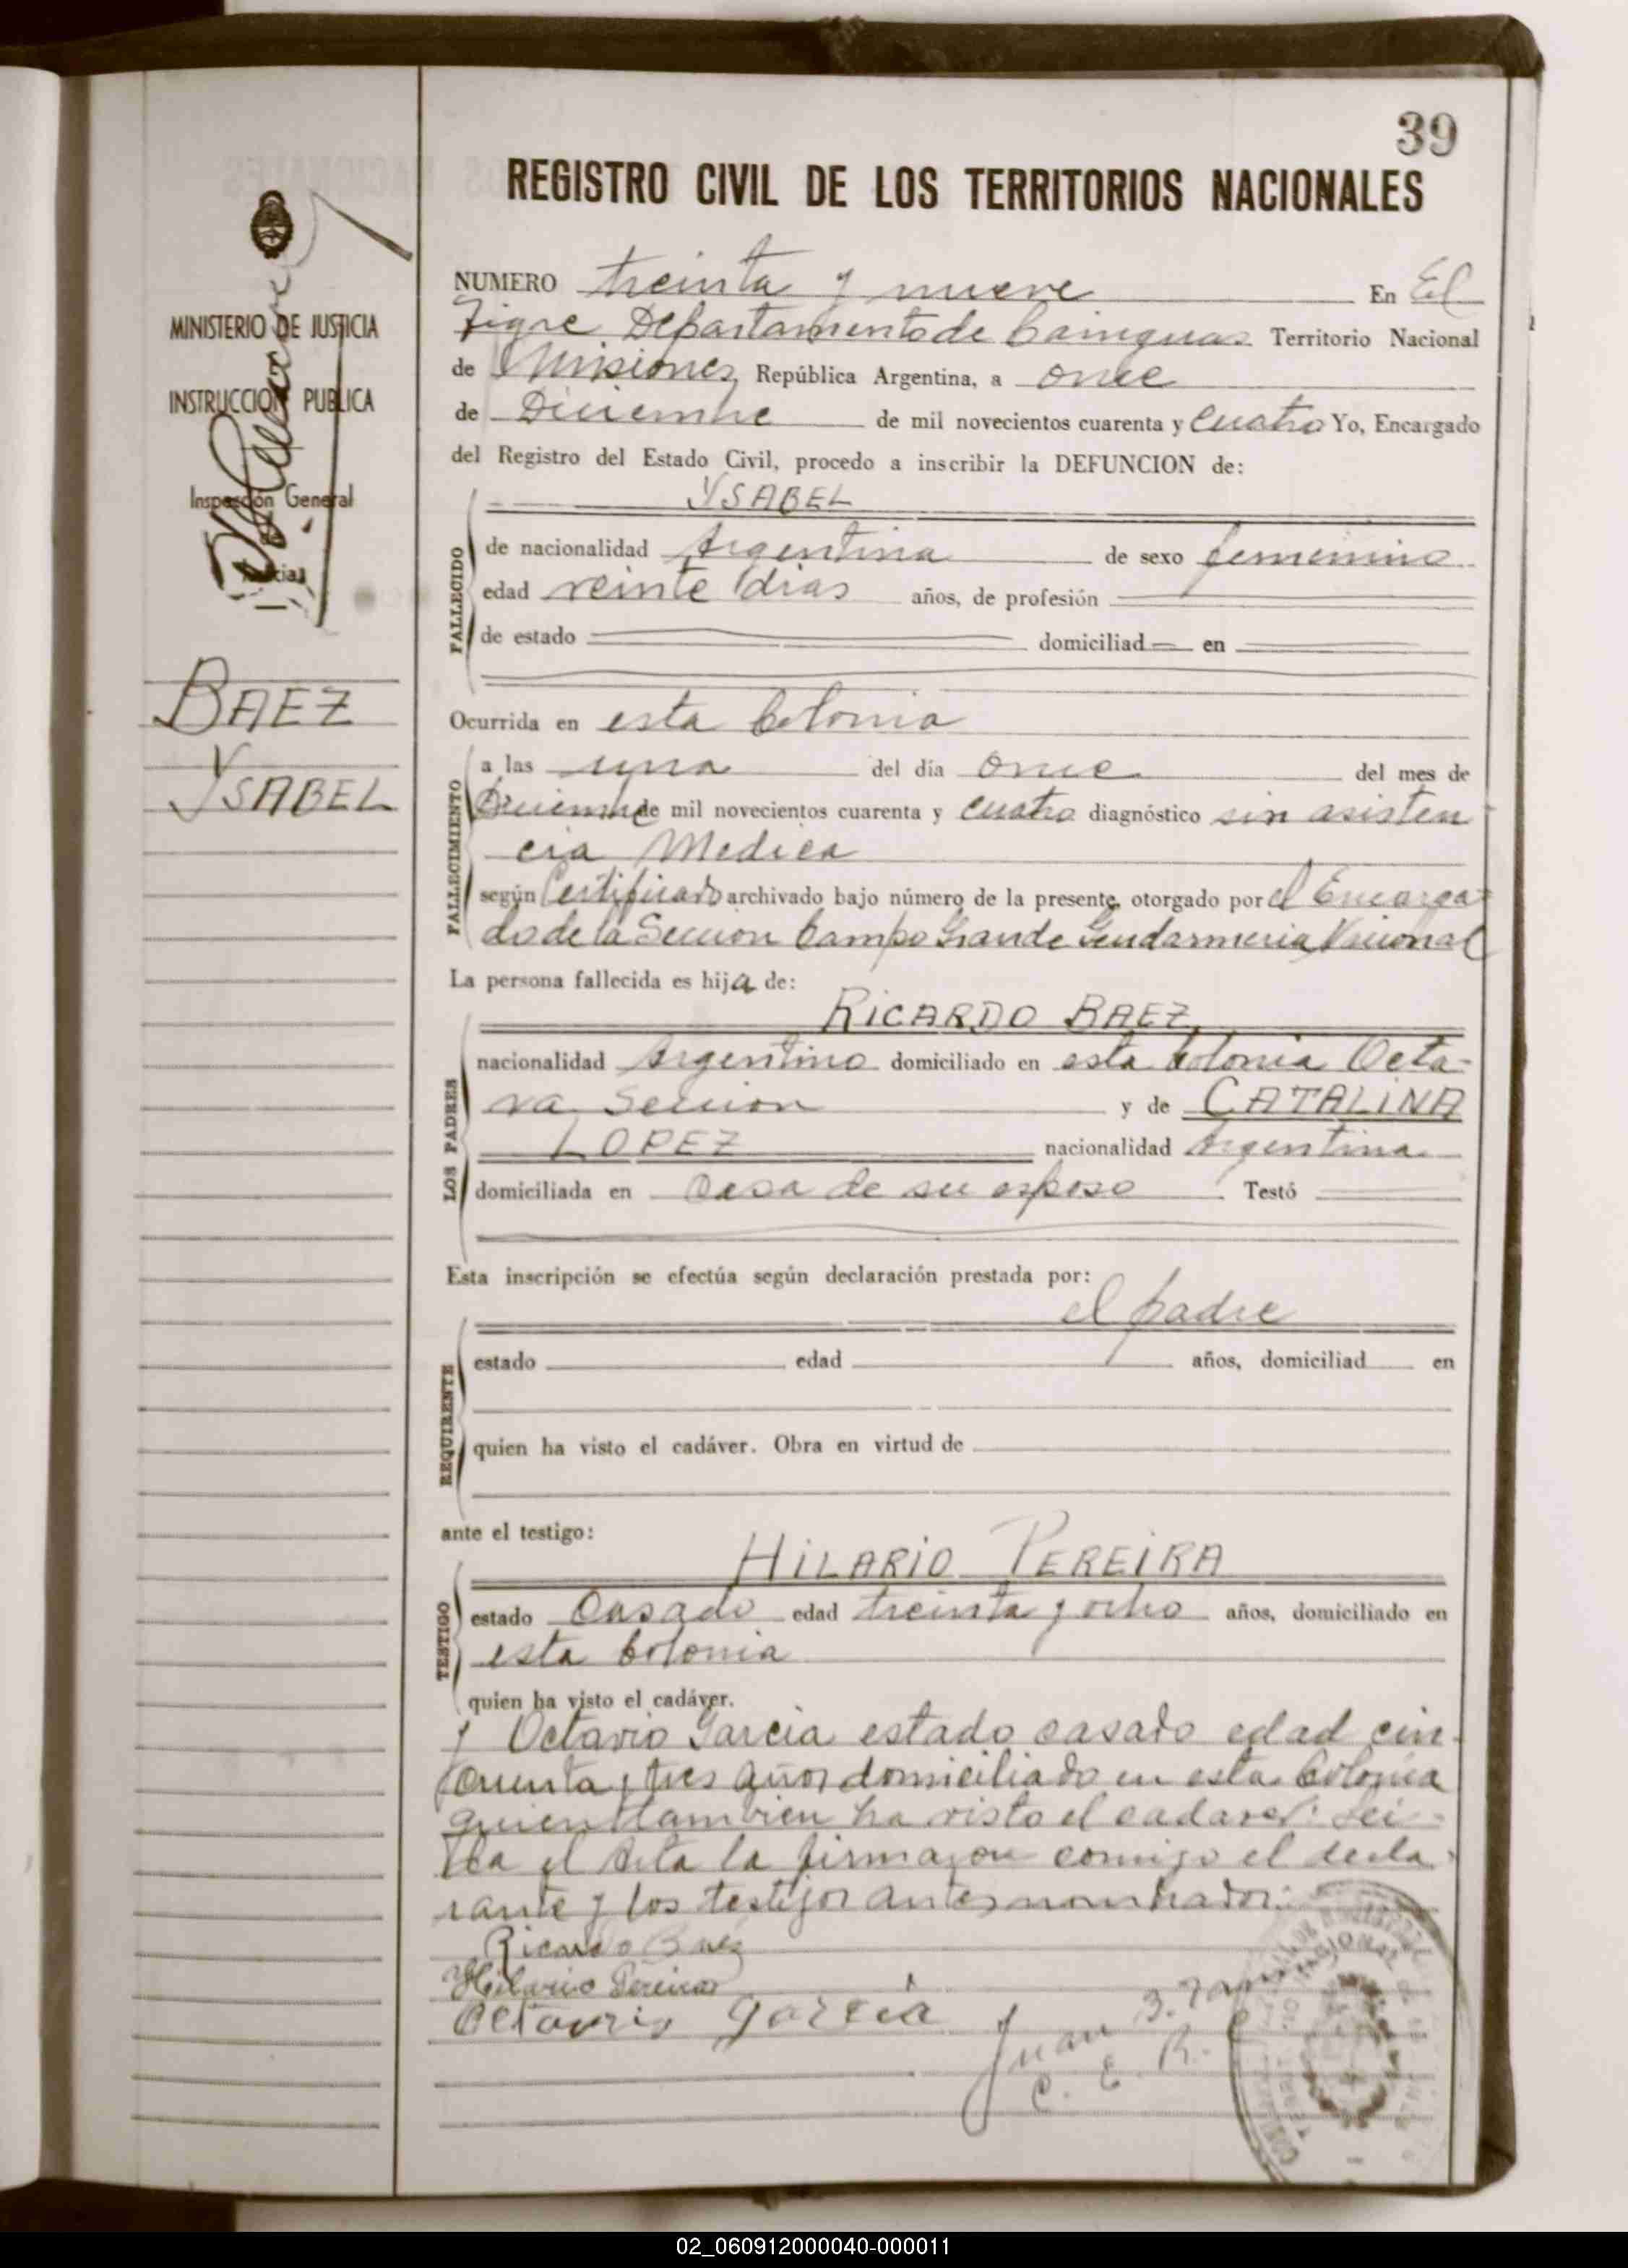 39
REGISTRO CIVIL DE LOS TERRITORIOS NACIONALES
MINISTERIO DE JUSTICIA
INSTRUCCION PUBLICA
Inspección General
BAEZ
YSABEL
NUMERO treinta y nueve En El
Tigre Departamento de Cainguas Territorio Nacional
de Misiones, República Argentina, a once
de Diciembre de mil novecientos cuarenta y cuatro Yo, Encargado
del Registro del Estado Civil, procedo a inscribir la DEFUNCION de:
YSABEL
FALLECIDO
de nacionalidad Argentina de sexo femenino
edad veinte dias años, de profesión
de estado domiciliad en
Ocurrida en esta Colonia
FALLECIMIENTO
a las una del día once del mes de
Diciembre de mil novecientos cuarenta y cuatro diagnóstico sin asisten
cia Medica
según Certificado archivado bajo número de la presente, otorgado por el Encarga-
do de la Seccion Campo Grande Gendarmeria Nacional
La persona fallecida es hija de:
RICARDO BAEZ
LOS PADRES
nacionalidad Argentino domiciliado en esta Colonia Octa-
va Seccion y de CATALINA
LOPEZ nacionalidad Argentina
domiciliada en casa de su esposo Testó
Esta inscripción se efectúa según declaración prestada por:
el padre
REQUIRENTE
estado edad años, domiciliad en
quien ha visto el cadáver. Obra en virtud de
ante el testigo:
HILARIO PEREIRA
TESTIGO
estado Casado edad treinta y ocho años, domiciliado en
esta Colonia
quien ha visto el cadáver.
y Octavio Garcia estado casado edad cin-
cuenta y tres años domiciliado en esta Colonia
quien tambien ha visto el cadaver. Lei-
da el Acta la firmaron comigo el decla-
rante y los testigos antes nombrados.
Ricardo Baez
Hilario Pereira
Octavio Garcia
Juan
C. E. R.
02_060912000040-000011